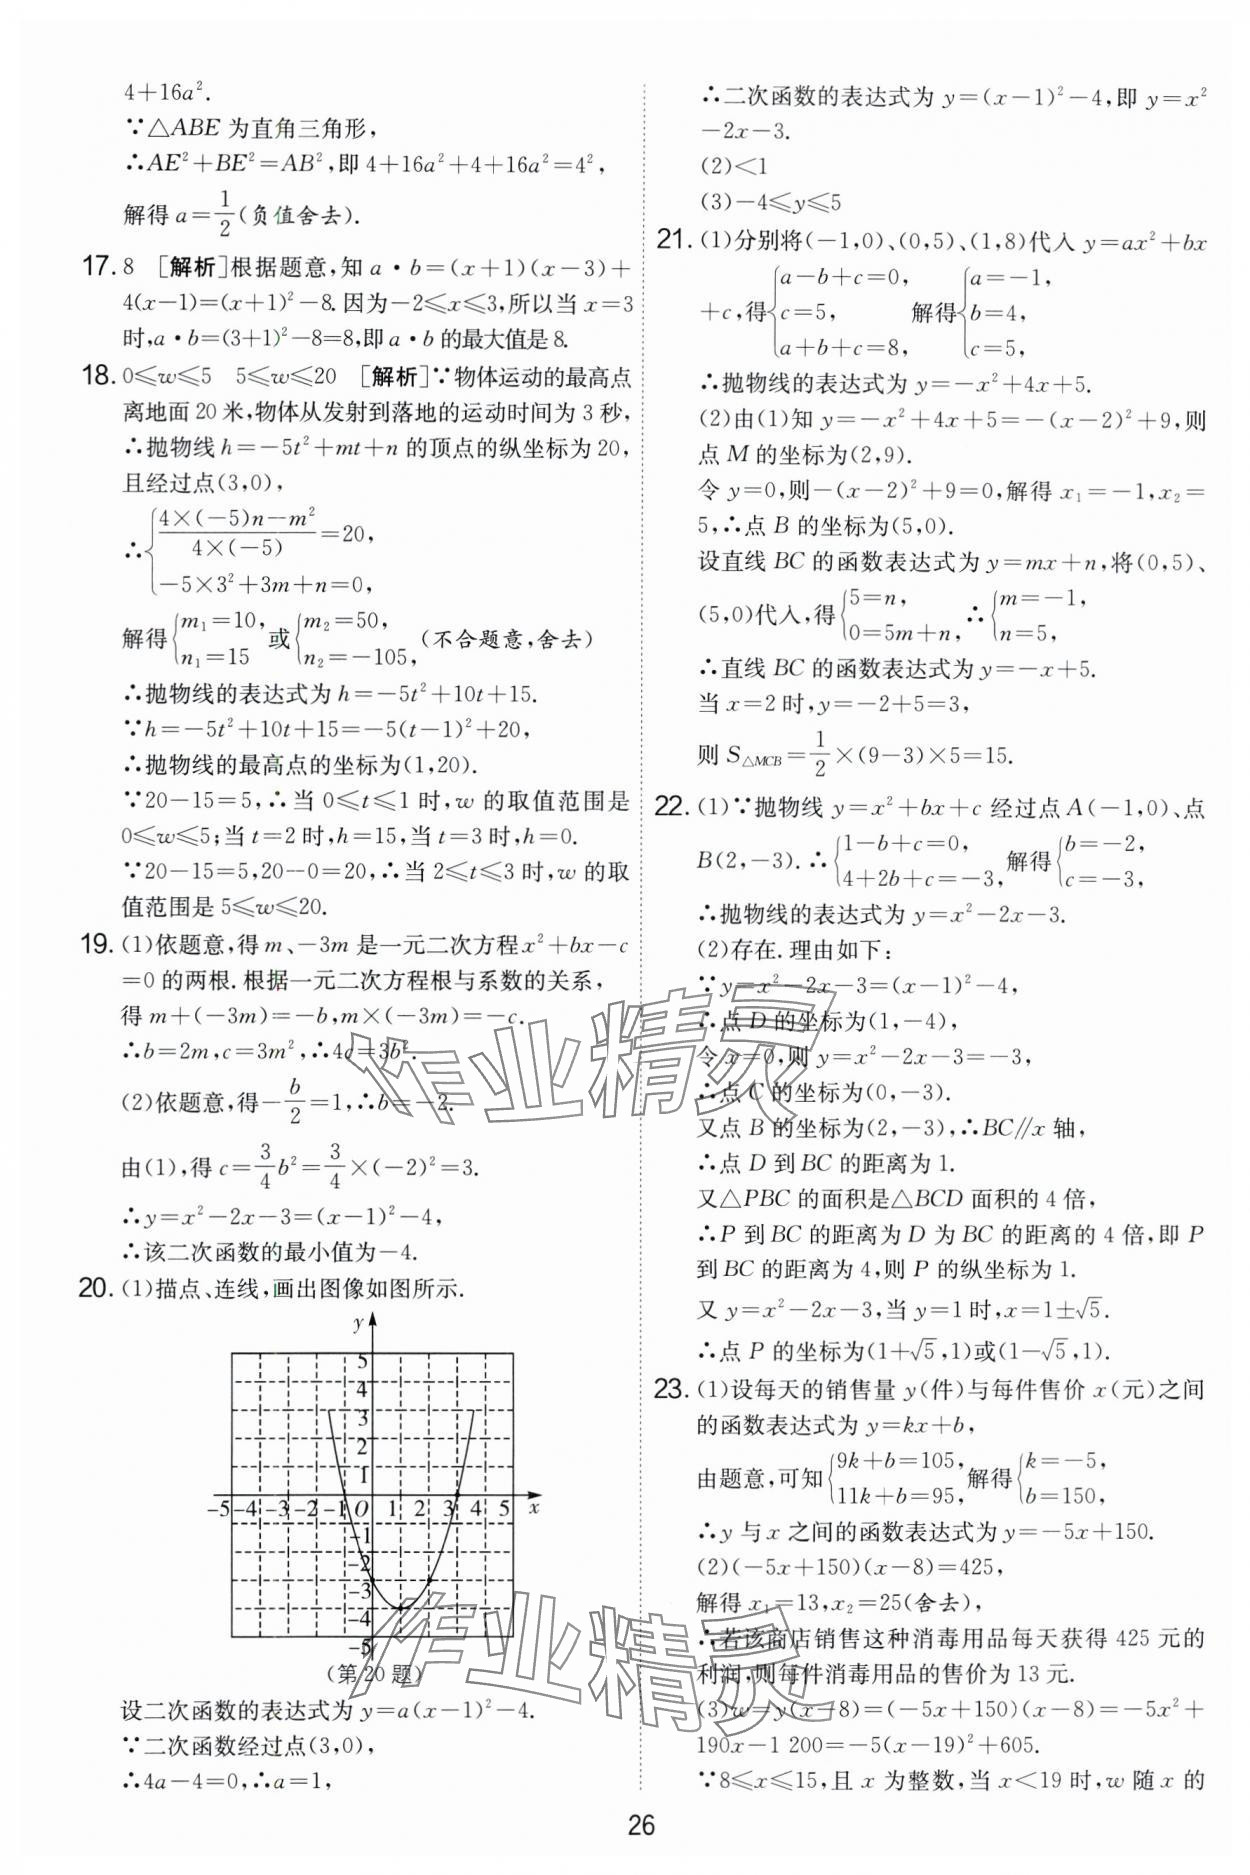 4+16a².
∵△ABE 为直角三角形，
∴AE²+BE²=AB²，即 4+16a²+4+16a²=4²，
解得 a=1/2(负值舍去).
17. 8 [解析]根据题意，知 a·b=(x+1)(x-3)+
4(x-1)=(x+1)²-8. 因为-2≤x≤3，所以当 x=3
时，a·b=(3+1)²-8=8，即 a·b 的最大值是 8.
18. 0≤w≤5 5≤w≤20 [解析]∵物体运动的最高点
离地面 20 米，物体从发射到落地的运动时间为 3 秒，
∴抛物线 h=-5t²+mt+n 的顶点的纵坐标为 20，
且经过点(3,0)，
∴{(4×(-5)n-m²)/(4×(-5))=20，
-5×3²+3m+n=0，
解得{m₁=10，n₁=15 或{m₂=50，n₂=-105，(不合题意，舍去)
∴抛物线的表达式为 h=-5t²+10t+15.
∵h=-5t²+10t+15=-5(t-1)²+20，
∴抛物线的最高点的坐标为(1,20).
∵20-15=5，∴当 0≤t≤1 时，w 的取值范围是
0≤w≤5；当 t=2 时，h=15，当 t=3 时，h=0.
∵20-15=5，20--0=20，∴当 2≤t≤3 时，w 的取
值范围是 5≤w≤20.
19. (1)依题意，得 m、-3m 是一元二次方程 x²+bx-c
=0 的两根. 根据一元二次方程根与系数的关系，
得 m+(-3m)=-b，m×(-3m)=-c.
∴b=2m，c=3m²，∴4c=3b².
(2)依题意，得-b/2=1，∴b=-2.
由(1)，得 c=3/4b²=3/4×(-2)²=3.
∴y=x²-2x-3=(x-1)²-4，
∴该二次函数的最小值为-4.
20. (1)描点、连线，画出图像如图所示.
y
5
4
3
2
1
-5 -4 -3 -2 -1 O 1 2 3 4 5 x
-1
-2
-3
-4
-5
(第 20 题)
设二次函数的表达式为 y=a(x-1)²-4.
∵二次函数经过点(3,0)，
∴4a-4=0，∴a=1，
∴二次函数的表达式为 y=(x-1)²-4，即 y=x²
-2x-3.
(2)<1
(3)-4≤y≤5
21. (1)分别将(-1,0)、(0,5)、(1,8)代入 y=ax²+bx
+c，得{a-b+c=0，c=5，a+b+c=8， 解得{a=-1，b=4，c=5，
∴抛物线的表达式为 y=-x²+4x+5.
(2)由(1)知 y=-x²+4x+5=-(x-2)²+9，则
点 M 的坐标为(2,9).
令 y=0，则-(x-2)²+9=0，解得 x₁=-1，x₂=
5，∴点 B 的坐标为(5,0).
设直线 BC 的函数表达式为 y=mx+n，将(0,5)、
(5,0)代入，得{5=n，0=5m+n， ∴{m=-1，n=5，
∴直线 BC 的函数表达式为 y=-x+5.
当 x=2 时，y=-2+5=3，
则 S△MCB=1/2×(9-3)×5=15.
22. (1)∵抛物线 y=x²+bx+c 经过点 A(-1,0)、点
B(2,-3). ∴{1-b+c=0，4+2b+c=-3， 解得{b=-2，c=-3，
∴抛物线的表达式为 y=x²-2x-3.
(2)存在. 理由如下：
∵y=x²-2x-3=(x-1)²-4，
∴点 D 的坐标为(1,-4)，
令 x=0，则 y=x²-2x-3=-3，
∴点 C 的坐标为(0,-3).
又点 B 的坐标为(2,-3)，∴BC∥x 轴，
∴点 D 到 BC 的距离为 1.
又△PBC 的面积是△BCD 面积的 4 倍，
∴P 到 BC 的距离为 D 为 BC 的距离的 4 倍，即 P
到 BC 的距离为 4，则 P 的纵坐标为 1.
又 y=x²-2x-3，当 y=1 时，x=1±√5.
∴点 P 的坐标为(1+√5,1)或(1-√5,1).
23. (1)设每天的销售量 y(件)与每件售价 x(元)之间
的函数表达式为 y=kx+b，
由题意，可知{9k+b=105，11k+b=95， 解得{k=-5，b=150，
∴y 与 x 之间的函数表达式为 y=-5x+150.
(2)(-5x+150)(x-8)=425，
解得 x₁=13，x₂=25(舍去)，
∴若该商店销售这种消毒用品每天获得 425 元的
利润，则每件消毒用品的售价为 13 元.
(3)w=y(x-8)=(-5x+150)(x-8)=-5x²+
190x-1 200=-5(x-19)²+605.
∵8≤x≤15，且 x 为整数，当 x<19 时，w 随 x 的
26
作业精灵
作业精灵